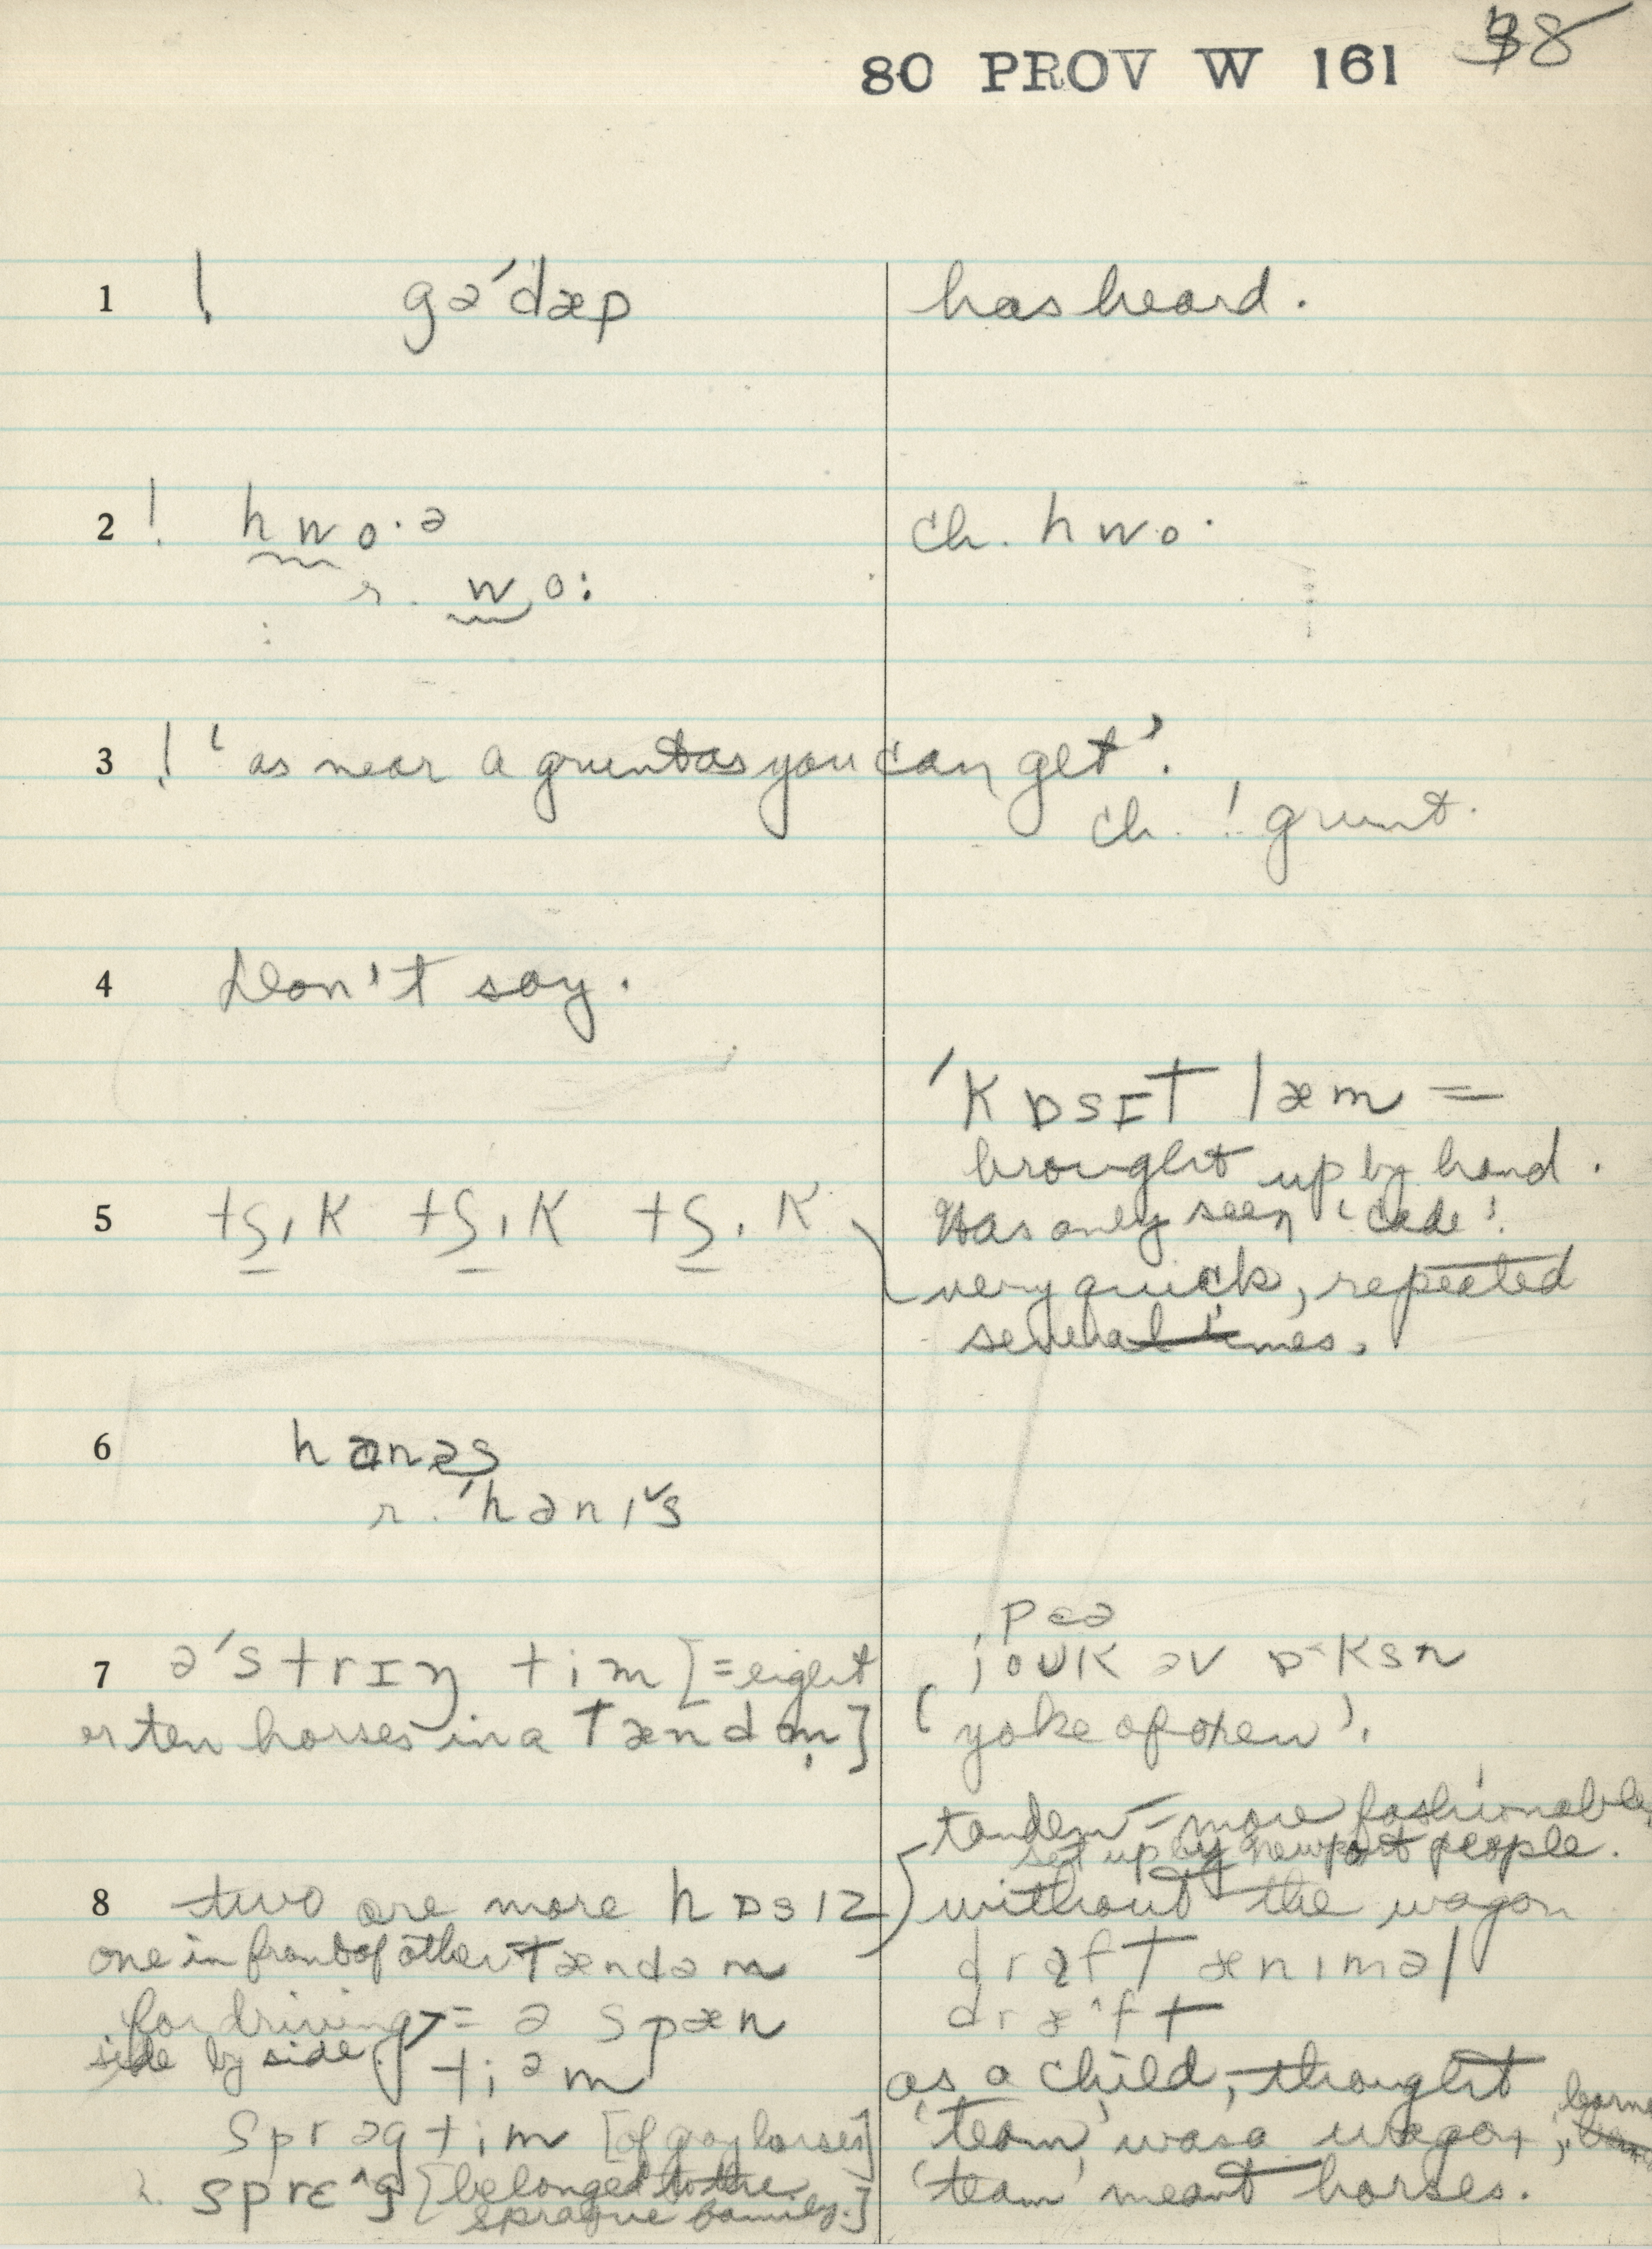 80 PROV W 161 38
1 ! gə'dæp has heard.
2 ! hwo·ə ch. hwo·
r. wo:
3 ! 'as near a grunt as you can get'.
ch. ! grunt.
4 Don't say.
'kɒsɪt læm =
brought up by hand.
Has only seen 'cade'.
5 tʃɪk tʃɪk tʃɪk very quick, repeated
several times.
6 hanəs
r. 'hanɪ˅s
pɛə
7 ə'strɪŋ tim [= eight joʊk əv ɒ˂ksn
or ten horses in a tændm̩] 'yoke of oxen'.
tandem – more fashionable,
set up by Newport people.
8 two are more hɒsɪz without the wagon
one in front of other tændəm draft ænɪməl
for driving = ə spæn dræ^ft
side by side tiəm as a child, thought
sprəg tim [of gray horses] 'team' was a wagon;
r. sprɛ^g [belonged to the 'team' meant horses.
Sprague family.]